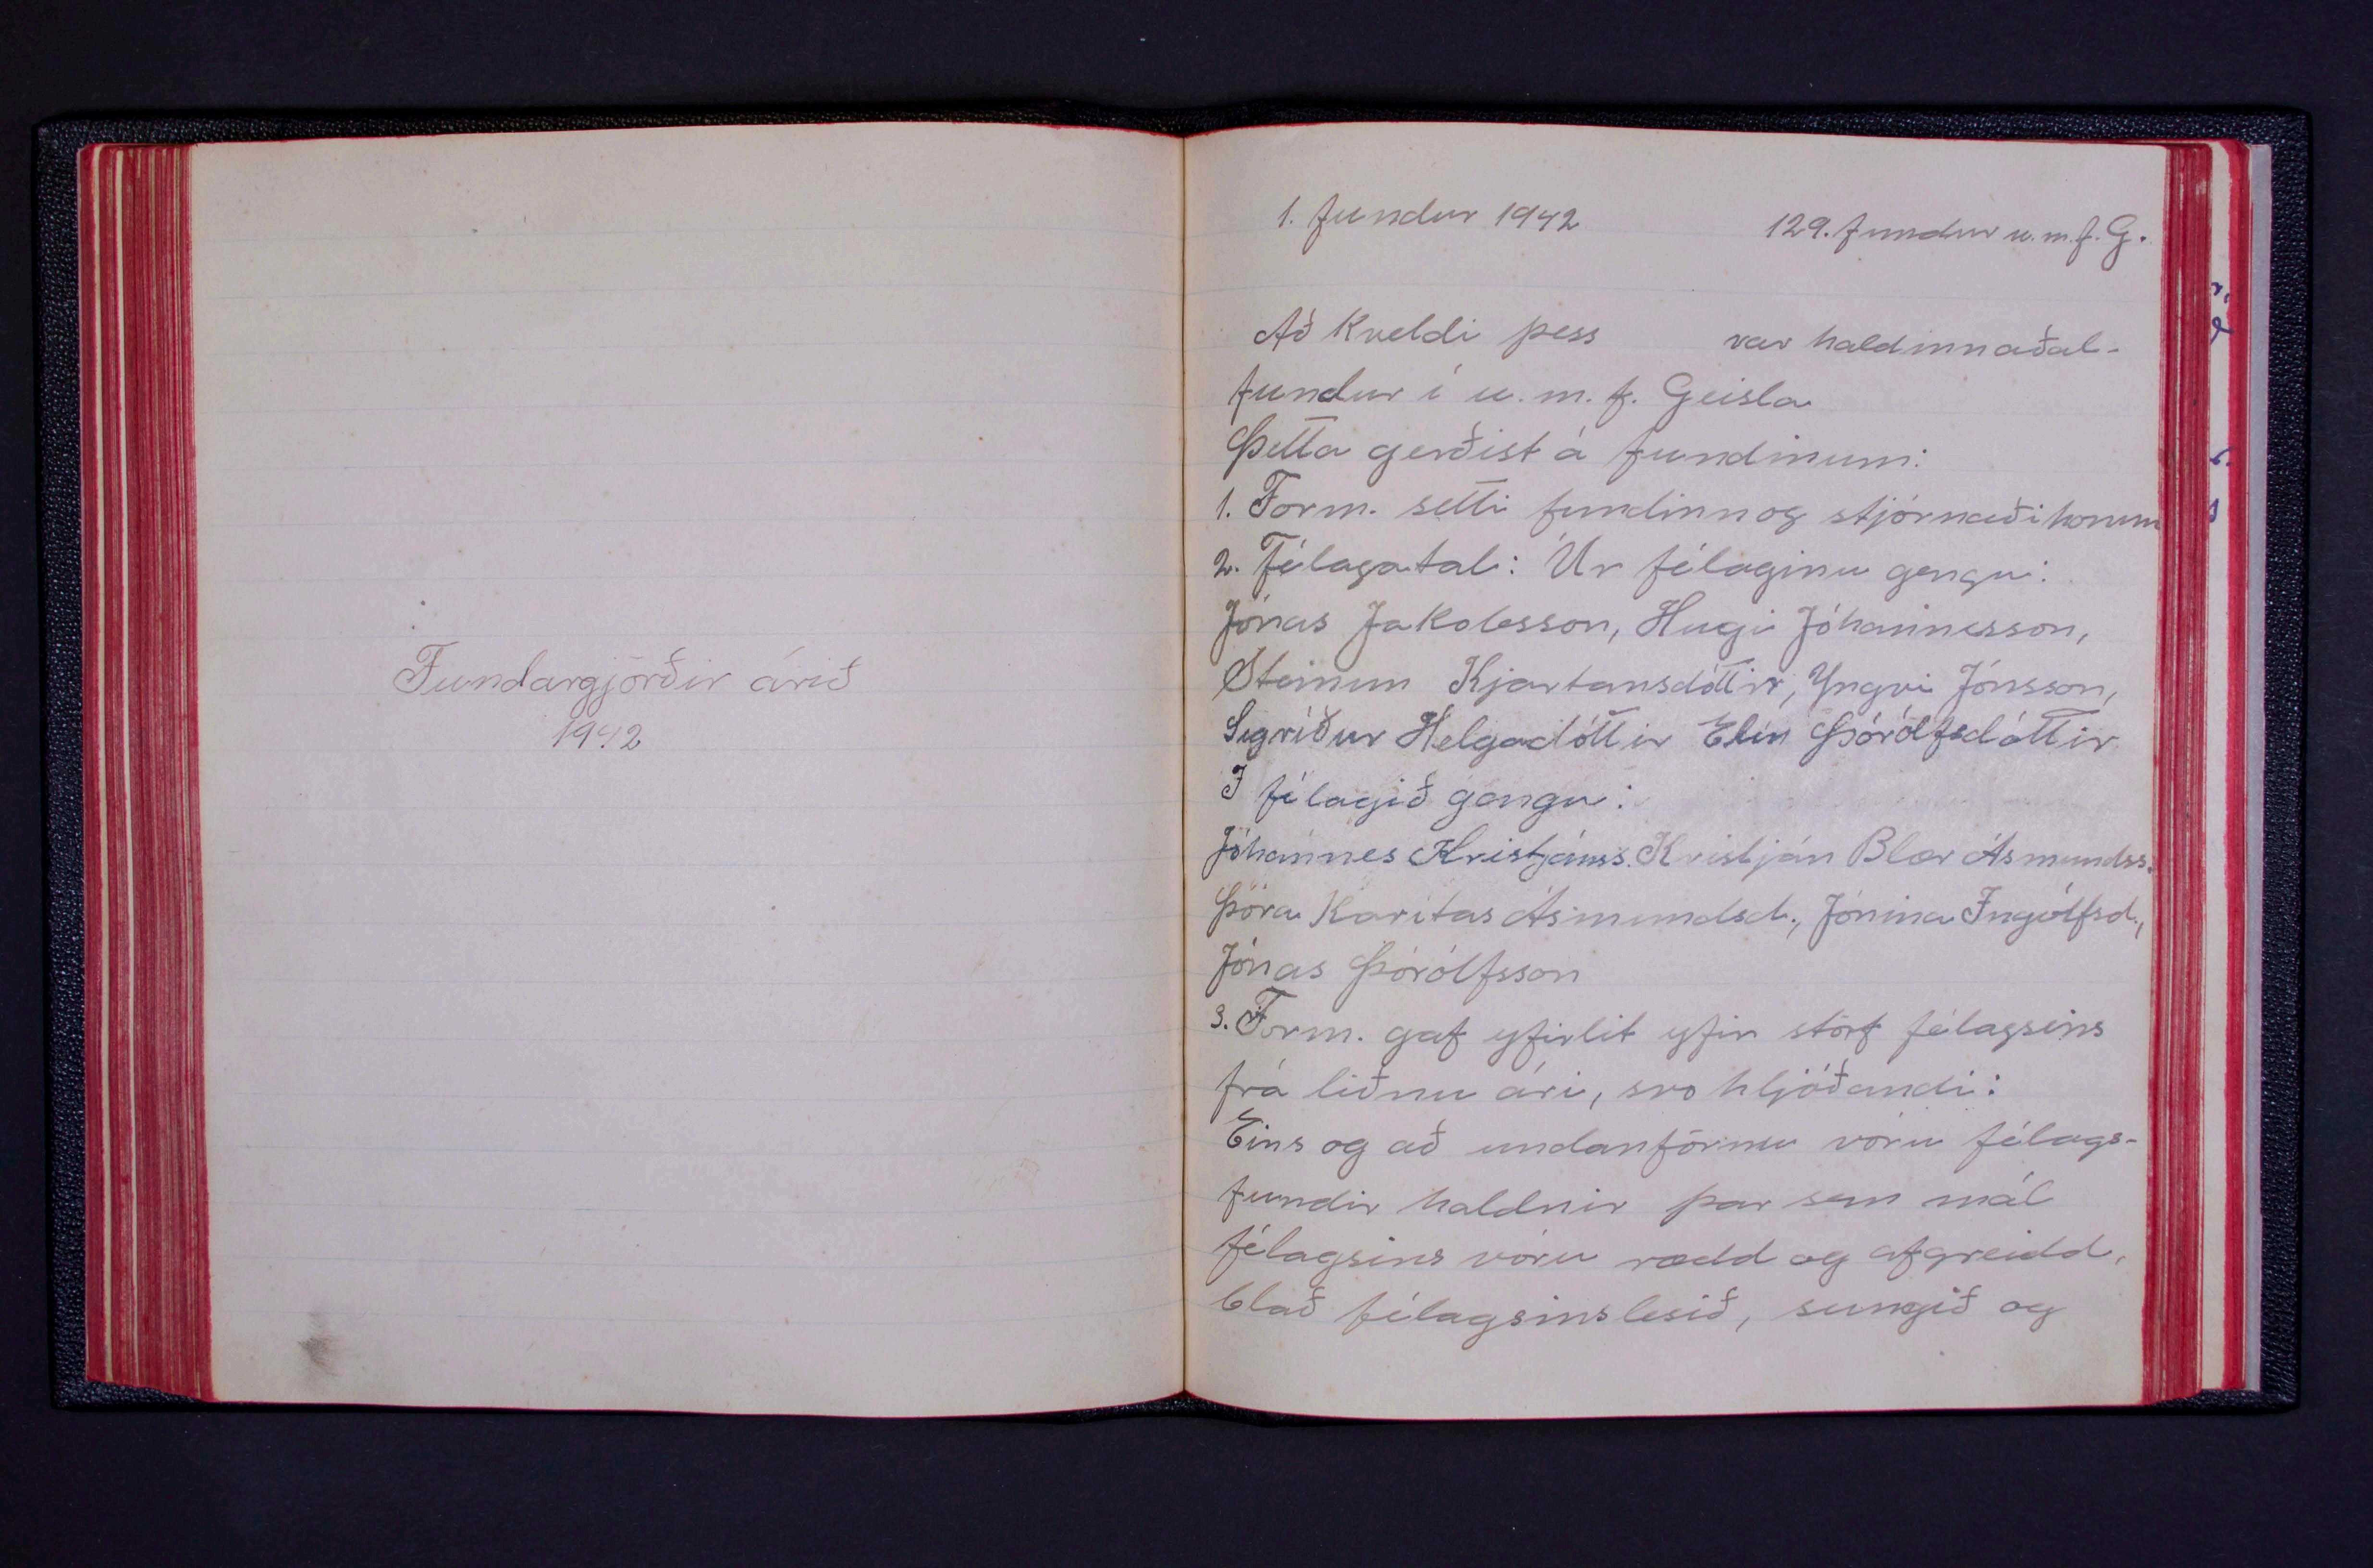 Fundargjörðir árið
1942
1. fundur 1942 129. fundur u. m. f. G.
Að Kveldi þess var haldinn aðal-
fundur í u. m. f. Geisla
Þetta gerðist á fundinum:
1. Form. setti fundinn og stjórnaði honum
2. Félagatal: Úr félaginu gengu:
Jónas Jakobsson, Hugi Jóhannesson,
Steinun Kjartansdóttir, Yngvi Jónsson,
Sigríður Helgadóttir Elín Þórólfsdóttir
Í félagið gengu:
Jóhannes Kristjánss. Kristján Blær Ásmundss.
Þóra Karitas Ásmundsd., Jónina Ingólfsd.,
Jónas Þórólfsson
3. Form. gaf yfirlit yfir störf félagsins
frá liðnu ári, svo hljóðandi:
Eins og að undanförnu vóru félags-
fundir haldnir þar sem mál
félagsins vóru rædd og afgreidd,
blað félagsins lesið, sungið og